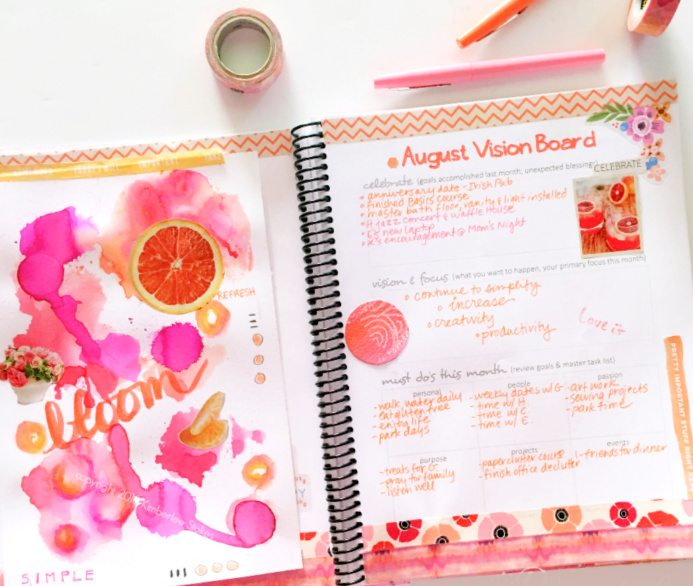 REFRESH
bloom
SIMPLE
August Vision Board
celebrate (goals accomplished last month; unexpected blessings)
CELEBRATE
anniversary date - Irish Pub
finished BASIS course
master bath floor, vanity & light installed
jazz concert & Waffle House
new laptop
encouragement @ Mom's Night
vision & focus (what you want to happen, your primary focus this month)
continue to simplify
increase
creativity
productivity
Love it
must do's this month (review goals & master task list)
personal
- walk, water daily
- eat gluten free
- enjoy life
- park days
people
- weekly dates w/ G
- time w/ H
- time w/ C
- time w/ E
passion
- art work
- sewing projects
- park time
purpose
- treats for G
- pray for family
- listen well
projects
- paperclutter course
- finish office declutter
events
1 - friends for dinner
PRETTY IMPORTANT STUFF RIGHT
copyright Kimberlee Stokes